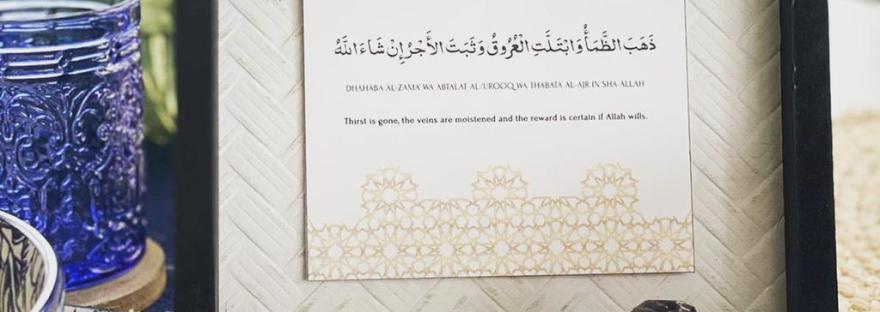 ذَهَبَ الظَّمَأُ وَابْتَلَّتِ الْعُرُوقُ وَثَبَتَ الأَجْرُ إِنْ شَاءَ اللَّهُ
DHAHABA AL-ZAMA' WA ABTALAT AL-'UROOQ WA THABATA AL-AJR IN SHA ALLAH
Thirst is gone, the veins are moistened and the reward is certain if Allah wills.